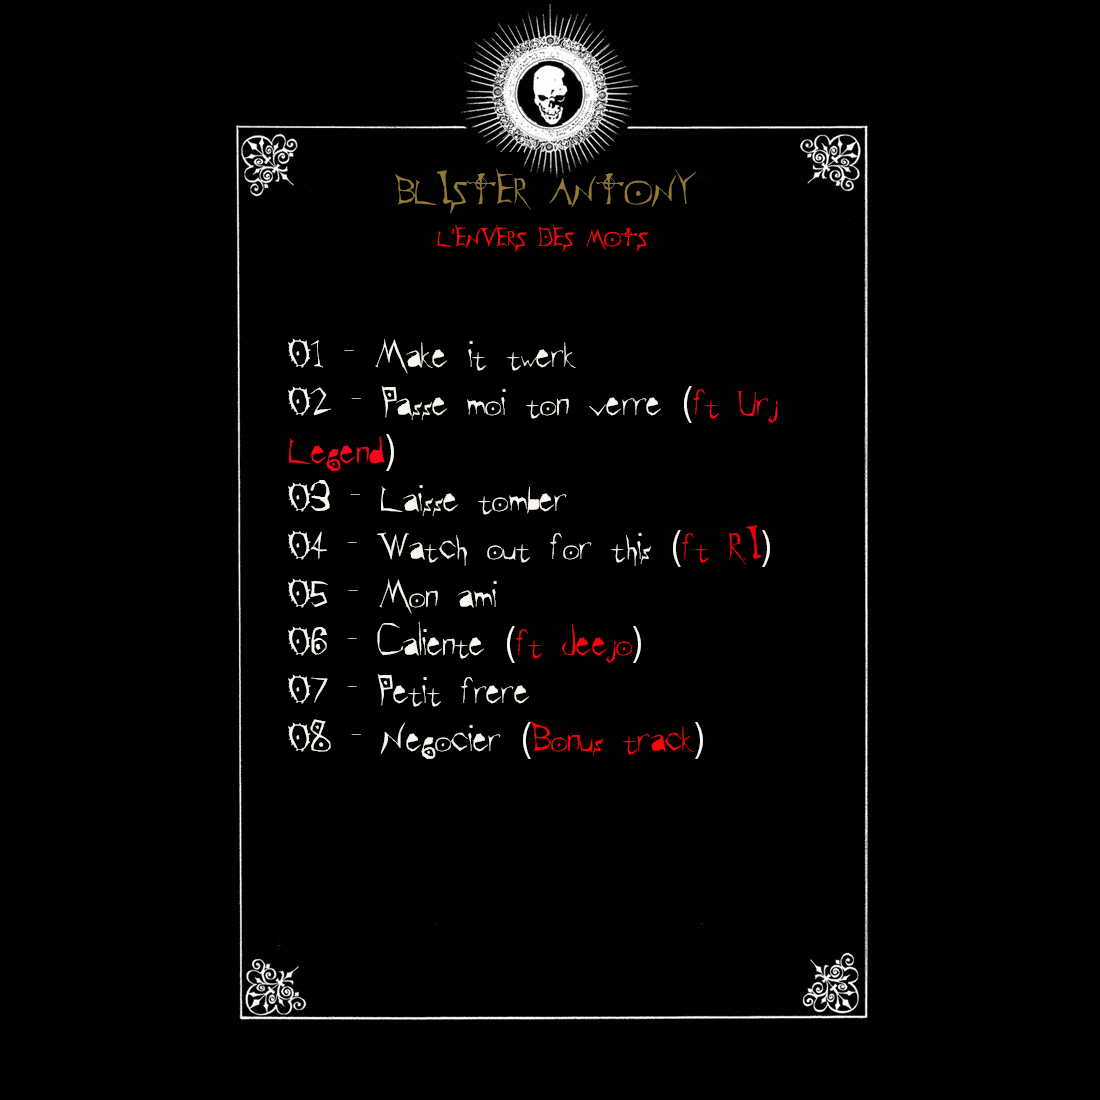 BLISTER ANTONY
L'ENVERS DES MOTS
01 - Make it twerk
02 - Passe moi ton verre (ft Urj
Legend)
03 - Laisse tomber
04 - Watch out for this (ft R.I)
05 - Mon ami
06 - Caliente (ft Jeejo)
07 - Petit frere
08 - Negocier (Bonus track)